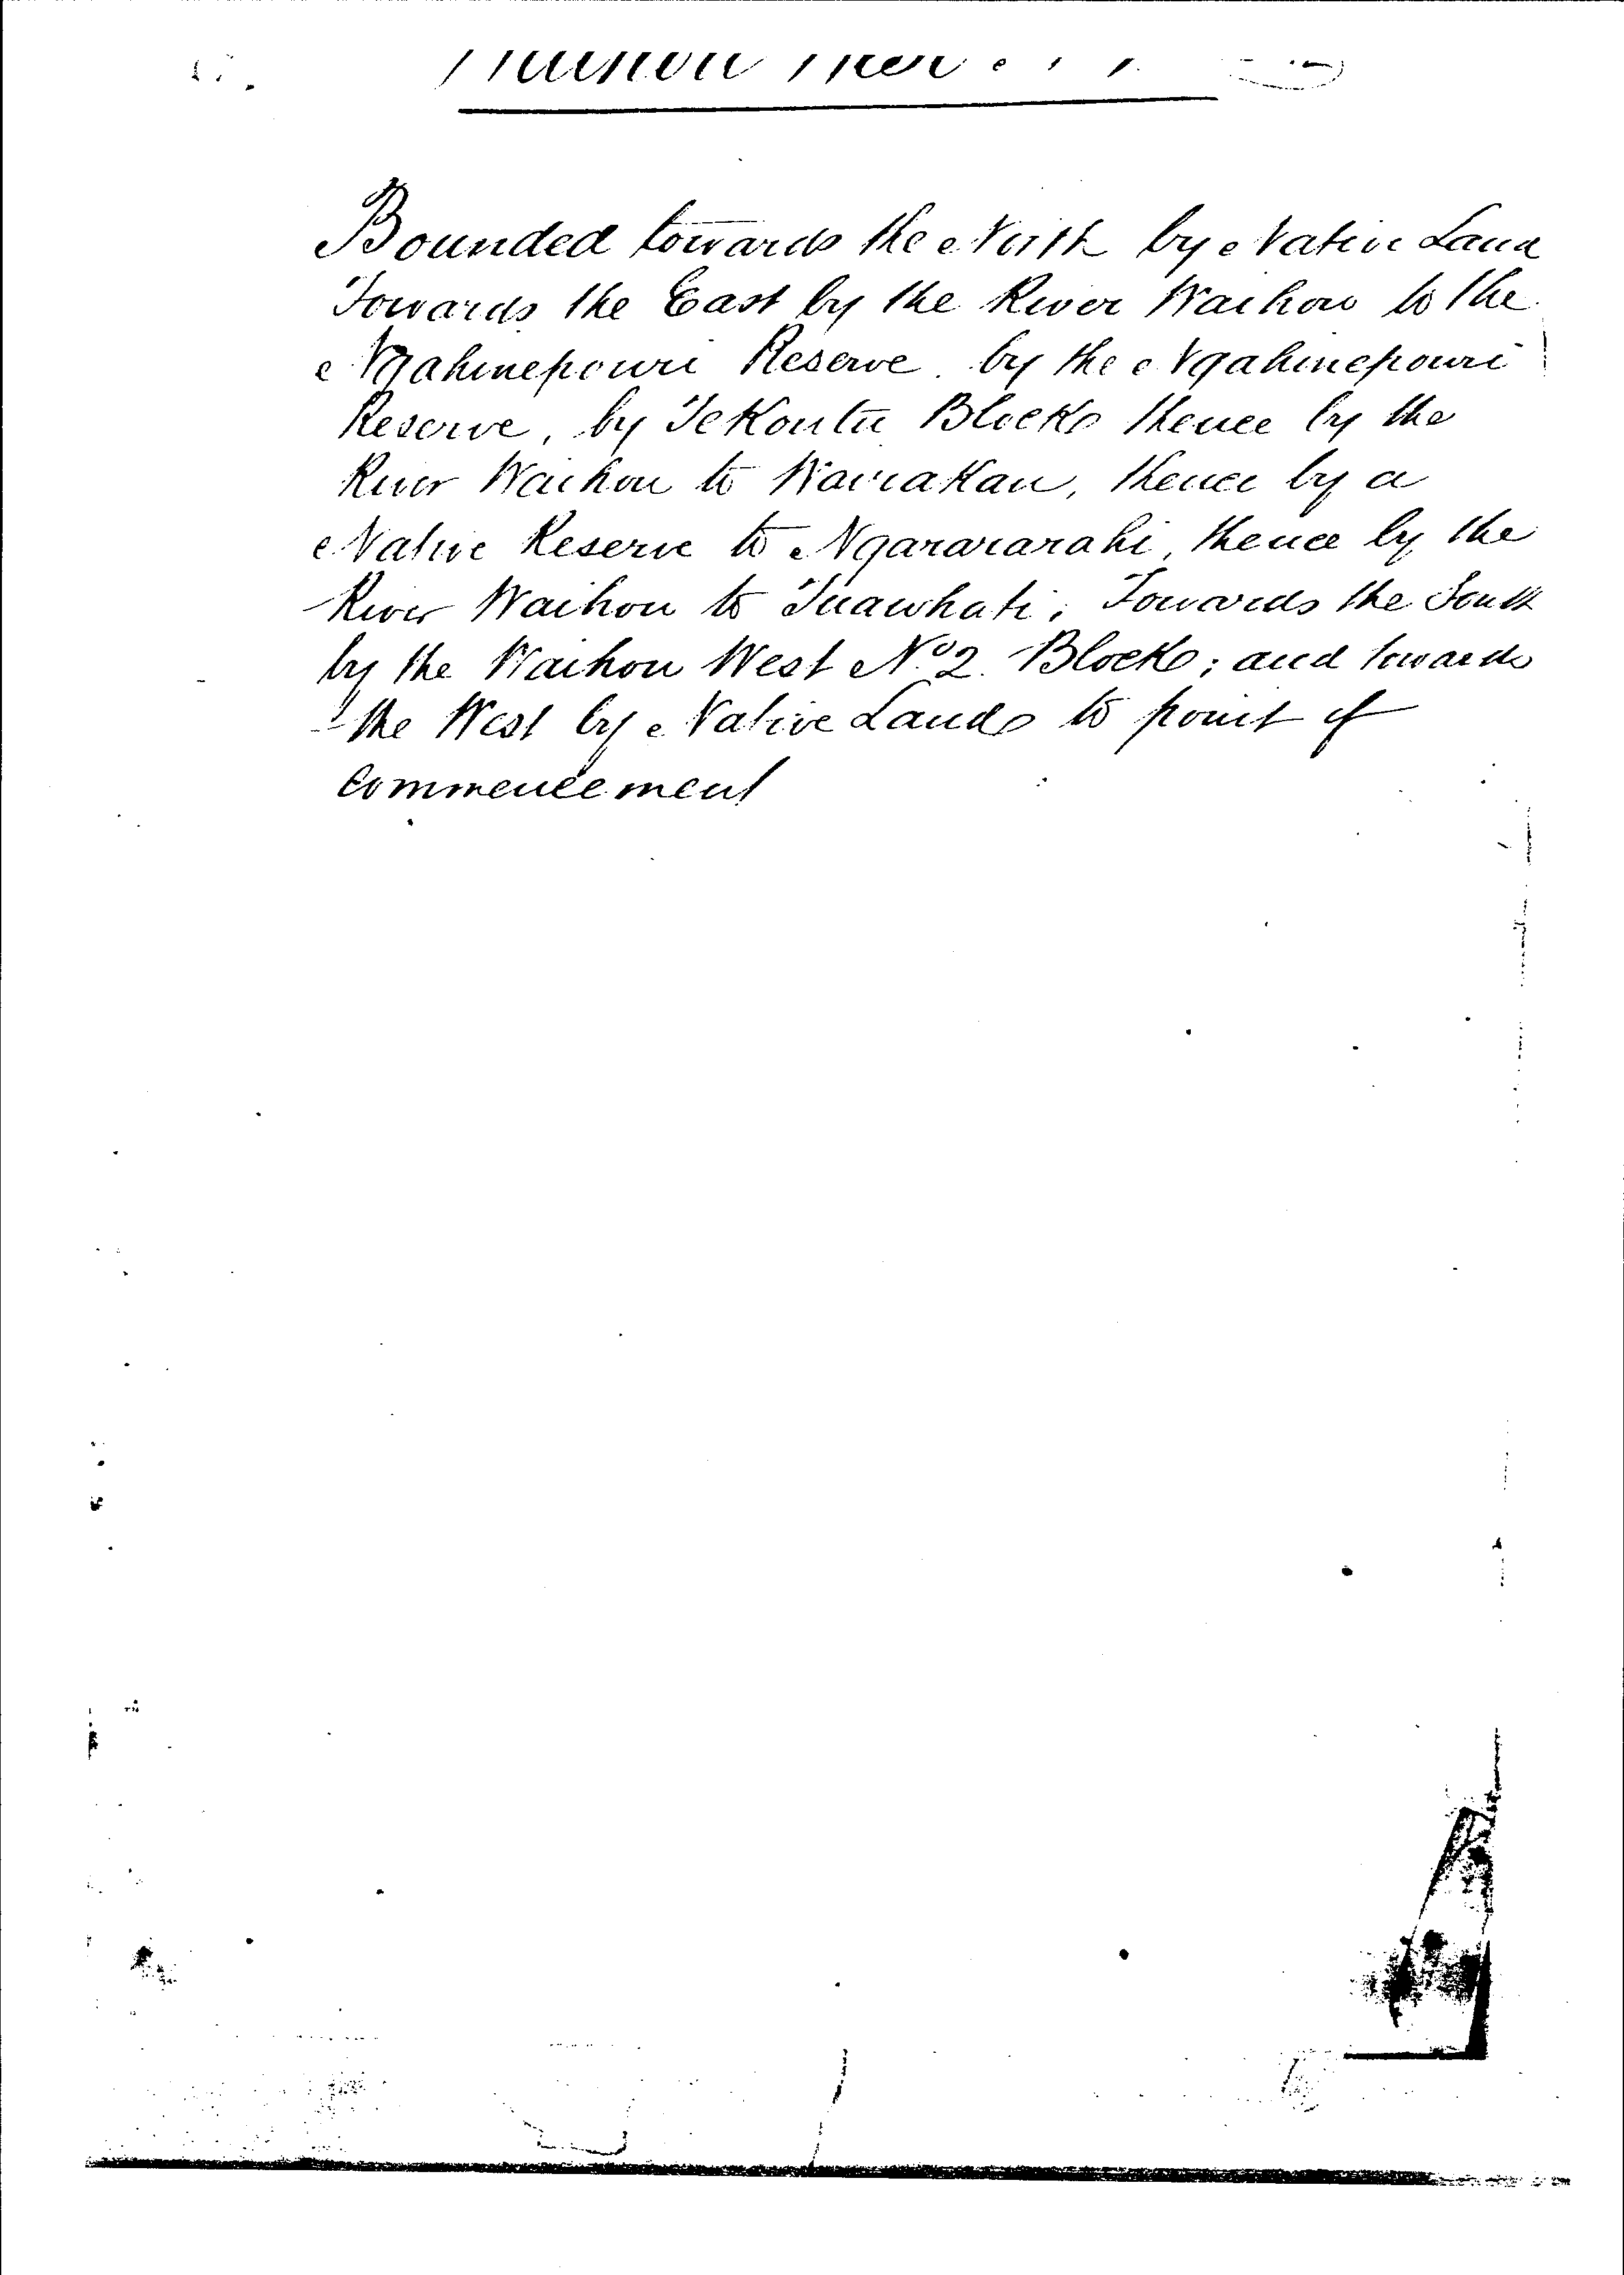 Waihou West
Bounded towards the North by Native Land
Towards the East by the River Waihou to the
Ngahinepouri Reserve. by the Ngahinepouri
Reserve, by Te Koutu Block thence by the
River Waihou to Wairakau, thence by a
Native Reserve to Ngarararahi, thence by the
River Waihou to Tuawhati; Towards the South
by the Waihou West No. 2. Block; and towards
the West by Native Lands to point of
Commencement